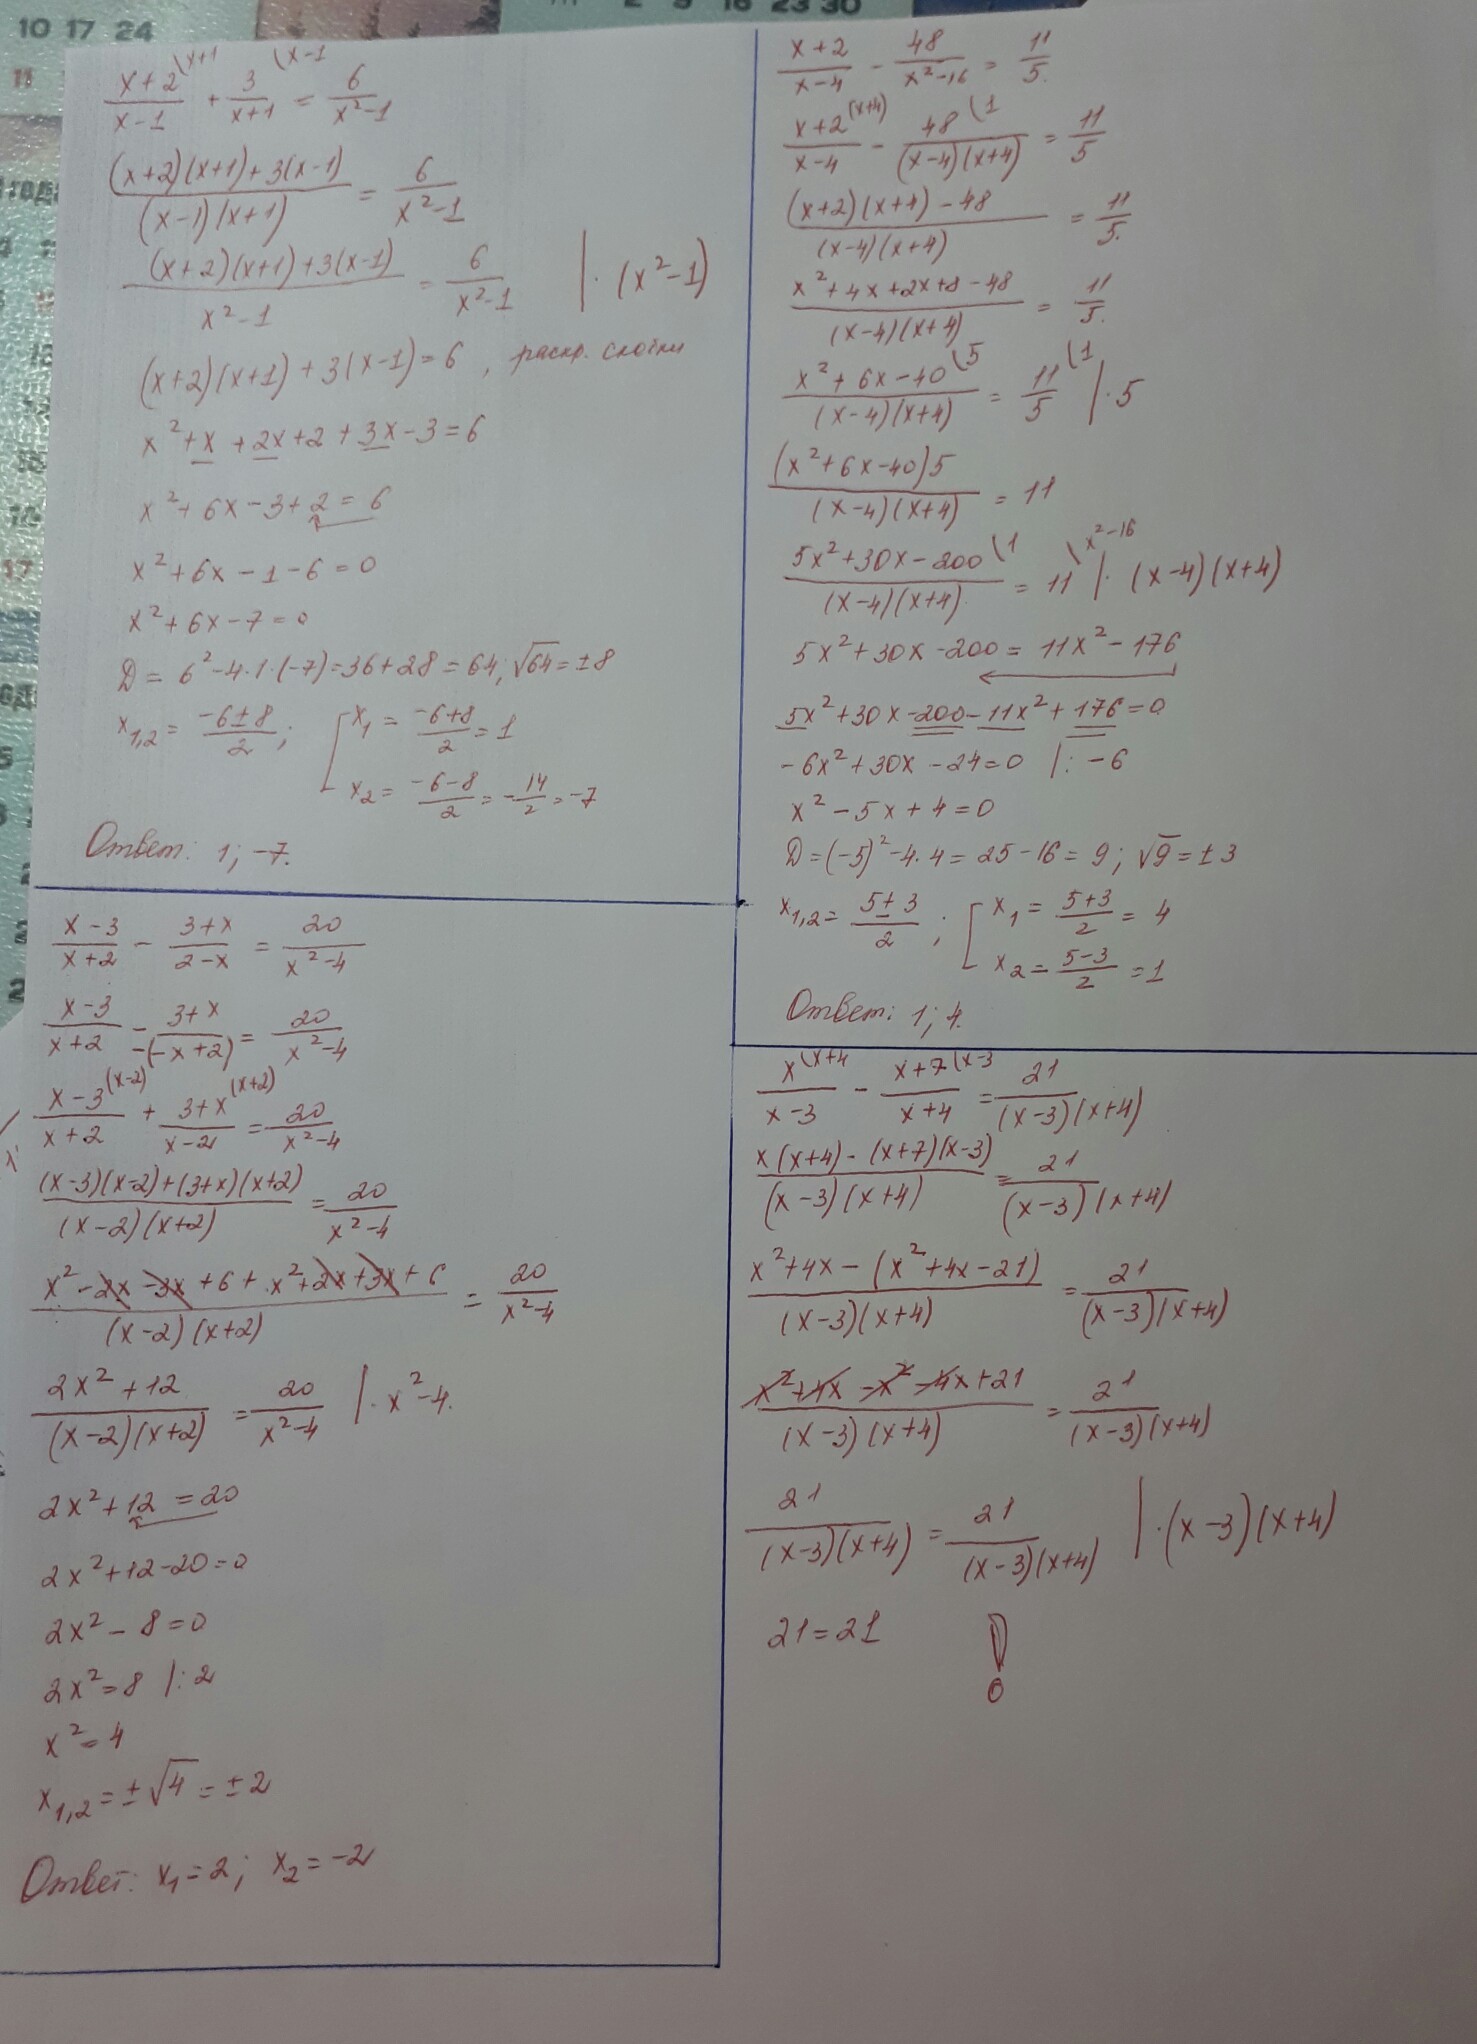 10 17 24
11
2 9 16 23 30
17
\frac{x+2}{x-1}^{\(x+1} + \frac{3}{x+1}^{\(x-1} = \frac{6}{x^2-1}
\frac{(x+2)(x+1)+3(x-1)}{(x-1)(x+1)} = \frac{6}{x^2-1}
\frac{(x+2)(x+1)+3(x-1)}{x^2-1} = \frac{6}{x^2-1} | · (x^2-1)
(x+2)(x+1)+3(x-1)=6, раскр. скобки
x^2+x+2x+2+3x-3=6
x^2+6x-3+2=6
x^2+6x-1-6=0
x^2+6x-7=0
D=6^2-4·1·(-7)=36+28=64; √64=±8
x_{1,2}=\frac{-6±8}{2}; [ x_1=\frac{-6+8}{2}=1
x_2=\frac{-6-8}{2}=-\frac{14}{2}=-7
Ответ: 1; -7.
\frac{x+2}{x-4} - \frac{48}{x^2-16} = \frac{11}{5}.
\frac{x+2}{x-4}^{(x+4)} - \frac{48}{(x-4)(x+4)}^{\(1} = \frac{11}{5}
\frac{(x+2)(x+4)-48}{(x-4)(x+4)} = \frac{11}{5}.
\frac{x^2+4x+2x+8-48}{(x-4)(x+4)} = \frac{11}{5}.
\frac{x^2+6x-40}{(x-4)(x+4)}^{\(5} = \frac{11}{5}^{\(1} | · 5
\frac{(x^2+6x-40)5}{(x-4)(x+4)} = 11
\frac{5x^2+30x-200}{(x-4)(x+4)}^{\(1} = 11^{\x^2-16} | · (x-4)(x+4)
5x^2+30x-200=11x^2-176
5x^2+30x-200-11x^2+176=0
-6x^2+30x-24=0 |: -6
x^2-5x+4=0
D=(-5)^2-4·4=25-16=9; √9=±3
x_{1,2}=\frac{5±3}{2}; [ x_1=\frac{5+3}{2}=4
x_2=\frac{5-3}{2}=1
Ответ: 1; 4.
\frac{x-3}{x+2} - \frac{3+x}{2-x} = \frac{20}{x^2-4}
\frac{x-3}{x+2} - \frac{3+x}{-(-x+2)} = \frac{20}{x^2-4}
\frac{x-3}{x+2}^{(x-2)} + \frac{3+x}{x-2}^{(x+2)} = \frac{20}{x^2-4}
\frac{(x-3)(x-2)+(3+x)(x+2)}{(x-2)(x+2)} = \frac{20}{x^2-4}
\frac{x^2-2x-3x+6+x^2+2x+3x+6}{(x-2)(x+2)} = \frac{20}{x^2-4}
\frac{2x^2+12}{(x-2)(x+2)} = \frac{20}{x^2-4} | · x^2-4.
2x^2+12=20
2x^2+12-20=0
2x^2-8=0
2x^2=8 |: 2
x^2=4
x_{1,2}=±√4=±2
Ответ: x_1=2; x_2=-2
\frac{x}{x-3}^{\(x+4} - \frac{x+7}{x+4}^{\(x-3} = \frac{21}{(x-3)(x+4)}
\frac{x(x+4)-(x+7)(x-3)}{(x-3)(x+4)} = \frac{21}{(x-3)(x+4)}
\frac{x^2+4x-(x^2+4x-21)}{(x-3)(x+4)} = \frac{21}{(x-3)(x+4)}
\frac{x^2+4x-x^2-4x+21}{(x-3)(x+4)} = \frac{21}{(x-3)(x+4)}
\frac{21}{(x-3)(x+4)} = \frac{21}{(x-3)(x+4)} | · (x-3)(x+4)
21=21 !